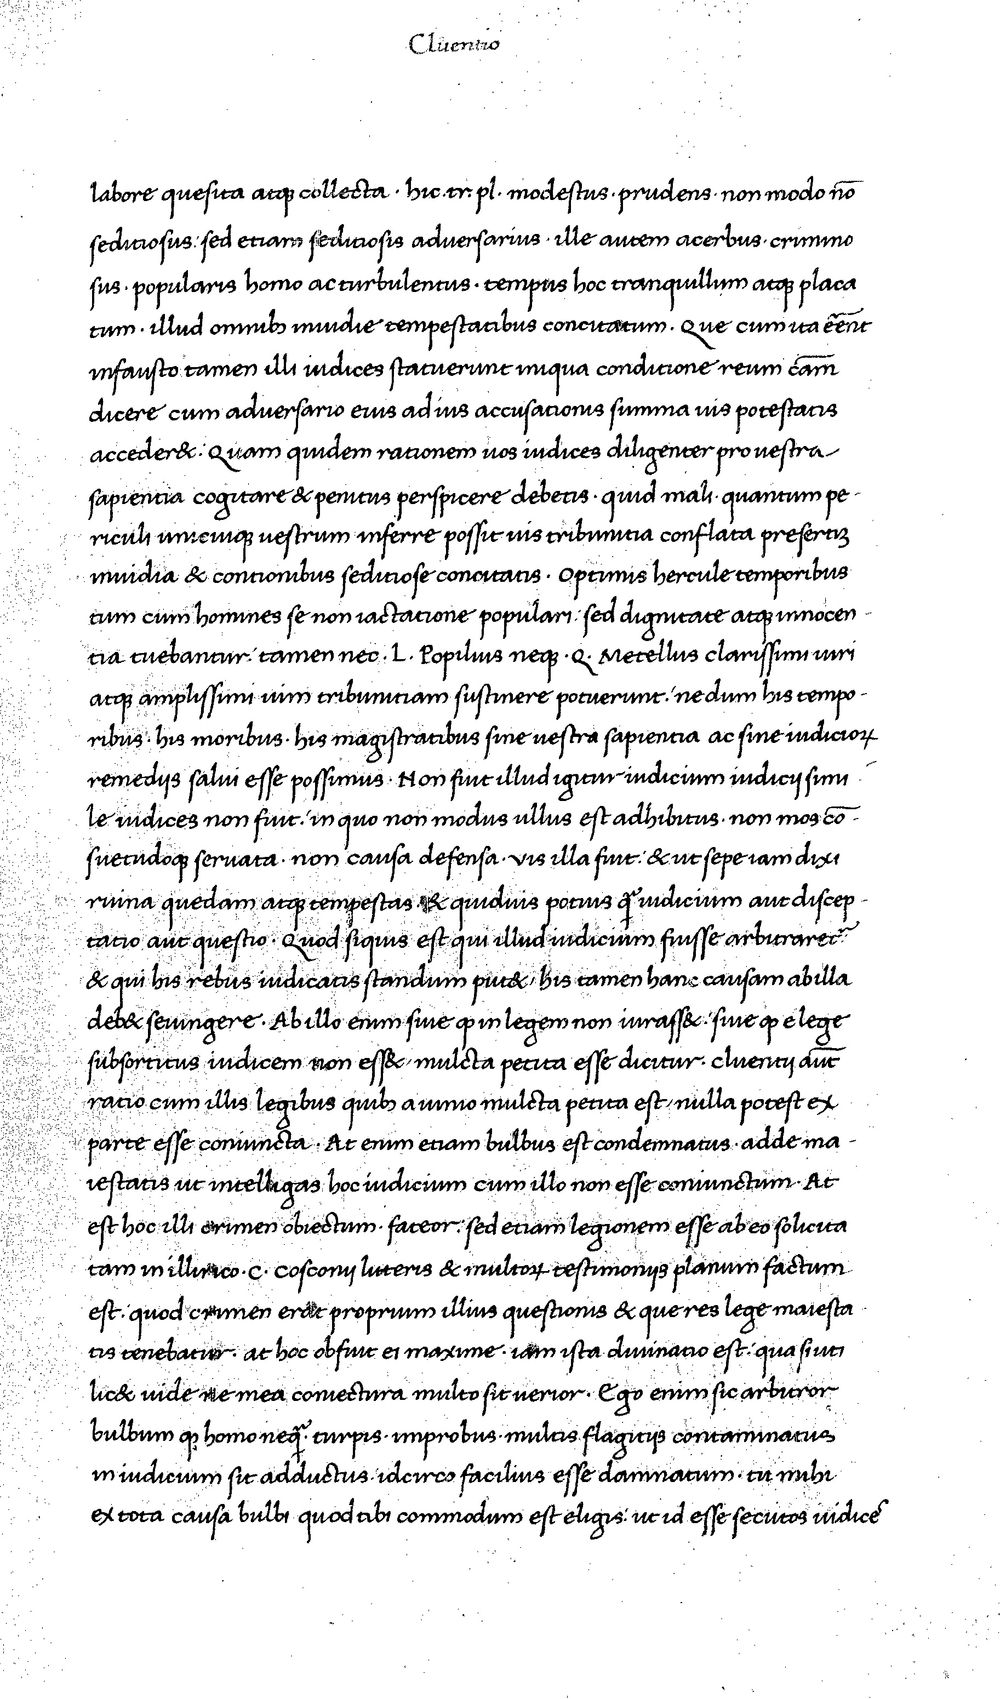 Cluentio
labore quesita atqꝫ collecta · hic · tr · pl · modestus · prudens · non modo nō
seditiosus: sed etiam seditiosis adversarius · ille autem acerbus · crimino
sus · popularis homo ac turbulentus · tempus hoc tranquillum atqꝫ placa
tum · illud omnibꝫ inuidie tempestatibus concitatum. Que cum ita eēnt
infausto tamen illi iudices statuerunt iniqua conditione reum cām
dicere cum adversario eius ad ius accusationis summa uis potestatis
acceder&: Quam quidem rationem uos iudices diligenter pro uestra
sapientia cogitare & penitus perspicere debetis · quid mali · quantum pe-
riculi unicuiqꝫ uestrum inferre possit uis tribunitia conflata presertiꝫ
inuidia & contionibus seditiose concitatis · Optimis hercule temporibus
tum cum homines se non iactatione populari: sed dignitate atqꝫ innocen-
tia tuebantur: tamen nec · L · Popilius neqꝫ · Q. Metellus clarissimi uiri
atqꝫ amplissimi uim tribunitiam sustinere potuerunt: ne dum his tempo-
ribus · his moribus · his magistratibus sine uestra sapientia ac sine iudicioꝝ
remedijs salui esse possimus · Non fuit illud igitur iudicium iudicij simi
le iudices non fuit: in quo non modus ullus est adhibitus · non mos cō-
suetudoqꝫ seruata · non causa defensa · vis illa fuit: & ut sepe iam dixi
ruina quedam atqꝫ tempestas & quiduis potius q̃ iudicium aut discep-
tatio aut questio · Quod siquis est qui illud iudicium fuisse arbitraret᷑
& qui his rebus iudicatis standum put& · his tamen hanc causam ab illa
deb& seiungere · Ab illo enim siue ꝙ in legem non iurass&: siue ꝙ e lege
subsortitus iudicem non ess& · mulcta petita esse dicitur · cluentij aūt
ratio cum illis legibus quibꝫ a iunio mulcta petita est, nulla potest ex
parte esse coniuncta · At enim etiam bulbus est condemnatus · adde ma-
iestatis ut intelligas hoc iudicium cum illo non esse coniunctum · At
est hoc illi crimen obiectum · fateor: sed etiam legionem esse ab eo solicita
tam in illirico · C · Cosconij litteris & multoꝝ testimonijs planum factum
est · quod crimen erat proprium illius questionis & que res lege maiesta
tis tenebatur · at hoc obfuit ei maxime · iam ista divinatio est: qua si uti
lic& uide ne mea coniectura multo sit uerior · Ego enim sic arbitror
bulbum ꝙ homo neq̃ · turpis · improbus · multis flagitijs contaminatus
in iudicium sit adductus · idcirco facilius esse damnatum · tu mihi
ex tota causa bulbi quod tibi commodum est eligis: ut id esse secutos iudicēs